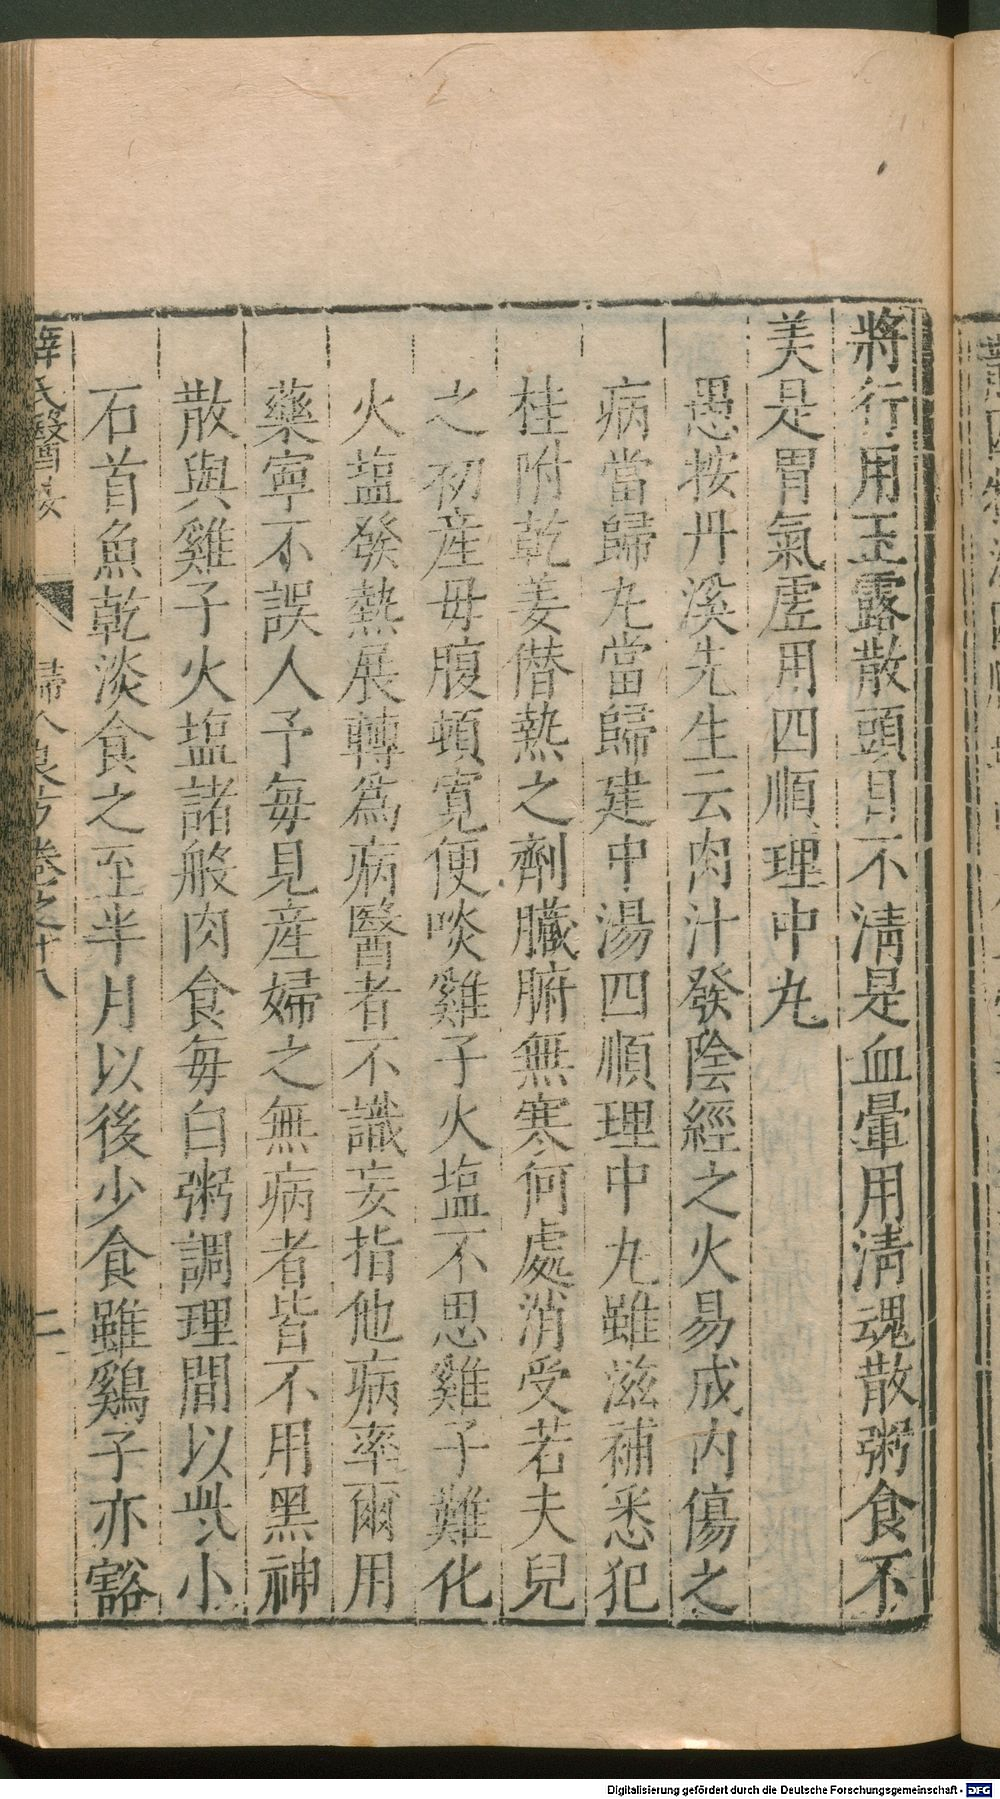 將行用玉露散頭目不清是血暈用清魂散粥食不
美是胃氣虛用四順理中丸
愚按丹溪先生云肉汁發陰經之火易成內傷之
病當歸丸當歸建中湯四順理中丸雖滋補悉犯
桂附乾姜僣熱之劑臟腑無寒何處消受若夫兒
之初產母腹頓寛便啖雞子火塩不思雞子難化
火塩發熱展轉爲病醫者不識妄指他病率爾用
藥寧不誤人予每見産婦之無病者皆不用黑神
散與雞子火塩諸般肉食每白粥調理間以些小
石首魚乾淡食之至半月以後少食雖鷄子亦豁
薛氏醫按 婦人良方卷之十八 二
Digitalisierung gefördert durch die Deutsche Forschungsgemeinschaft - DFG